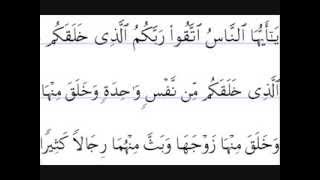 يَـٰٓأَيُّهَا ٱلنَّاسُ ٱتَّقُوا۟ رَبَّكُمُ ٱلَّذِى خَلَقَكُم
ٱلَّذِى خَلَقَكُم مِّن نَّفْسٍ وَٰحِدَةٍ وَخَلَقَ مِنْهَا
وَخَلَقَ مِنْهَا زَوْجَهَا وَبَثَّ مِنْهُمَا رِجَالًا كَثِيرًا